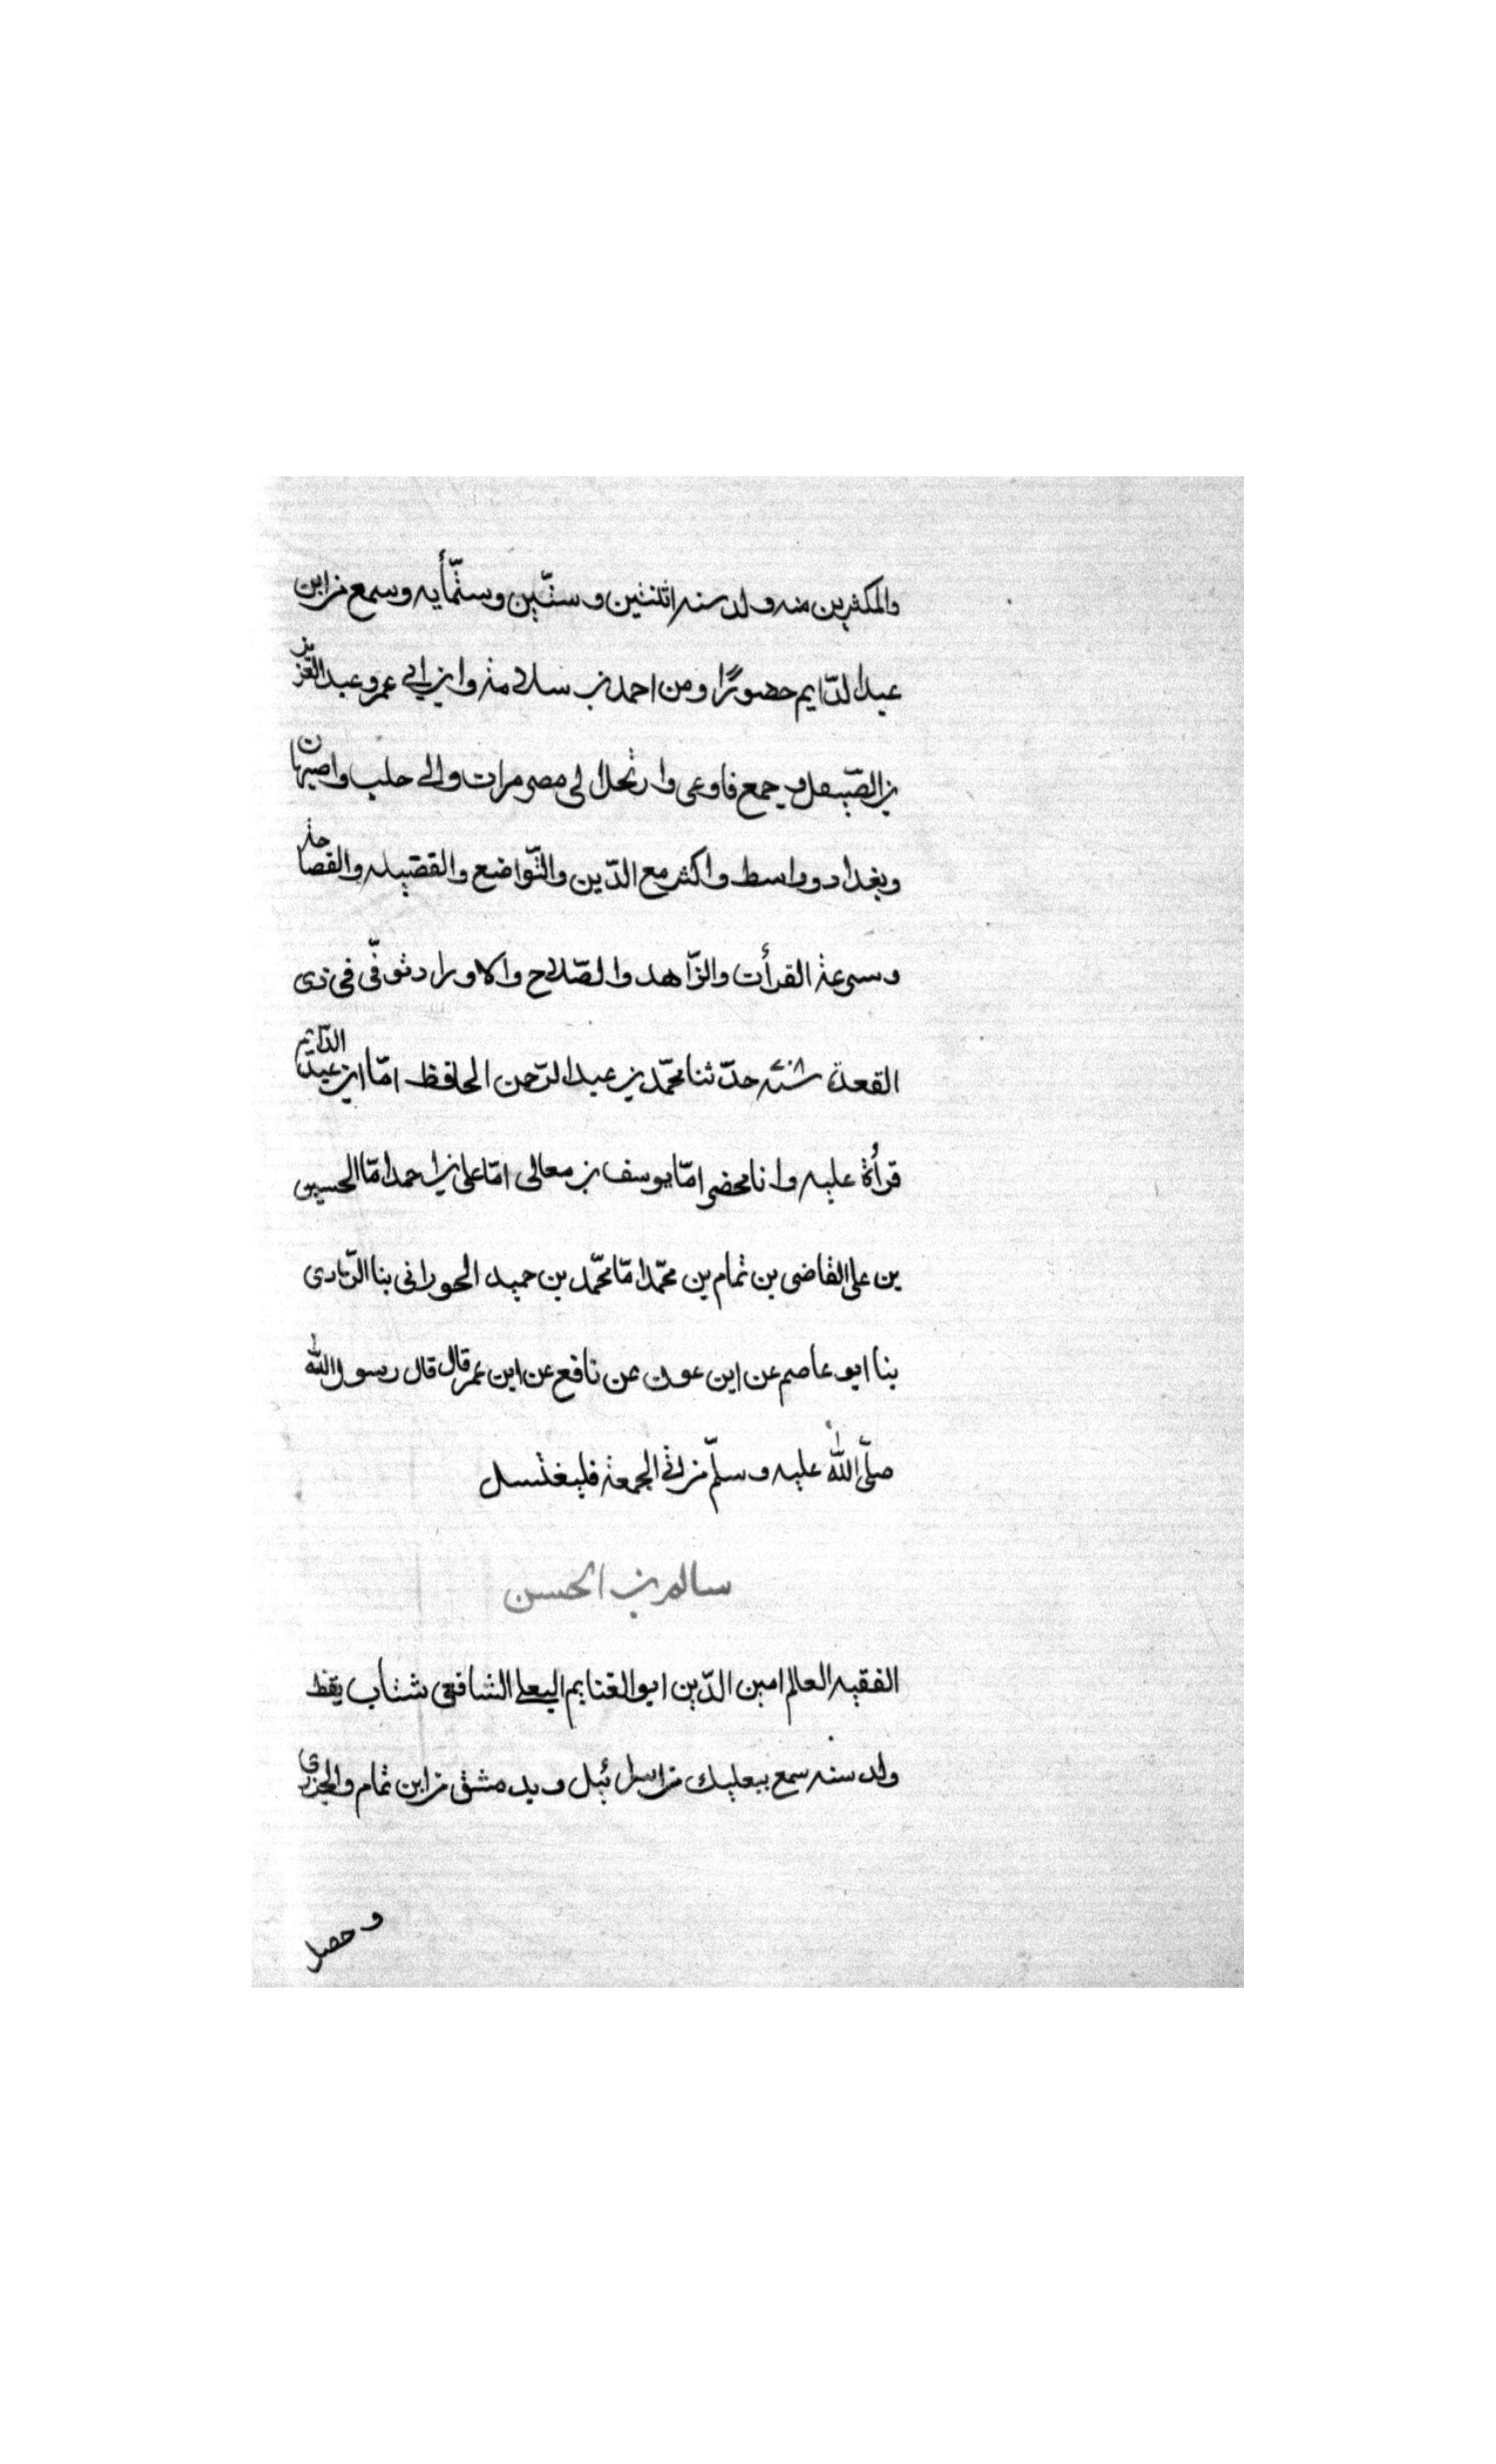 والمكثرين منه ولد سنه اثنتين وستّين وستّمأيه وسمع من ابن
عبد الدّايم حضورًا ومن احمد بن سلامة وابن ابي عمر وعبد العزيز
بن الصّيقل وجمع فاوعى وارتحل الى مصر مرات والى حلب واصبهان
وبغداد وواسط واكثر مع الدّين والتّواضع والفضيله والفصاحة
وسرعة القرأت والزّاهد والصّلاح والاوراد توفّى فى ذى
القعدة حدّثنا محمّد بن عبد الرّحمن الحافظ امّا ابن عبد الدّايم
قرأة عليه وانا محضر امّا يوسف بن معالى امّا على بن احمد امّا الحسين
بن على القاضى بن تمام بن محمّد امّا محمّد بن حميد الحورانى بنا الرّمادى
بنا ابو عاصم عن ابن عون عن نافع عن ابن عمر قال قال رسول الله
صلّى الله عليه وسلّم من اتى الجمعة فليغتسل
سالم بن الحسن
الفقيه العالم امين الدّين ابو الغنايم البعلى الشافعى شتاب يقظ
ولد سنه سمع ببعلبك من اسرائيل وبدمشق من ابن تمام والجزرى
وحصل